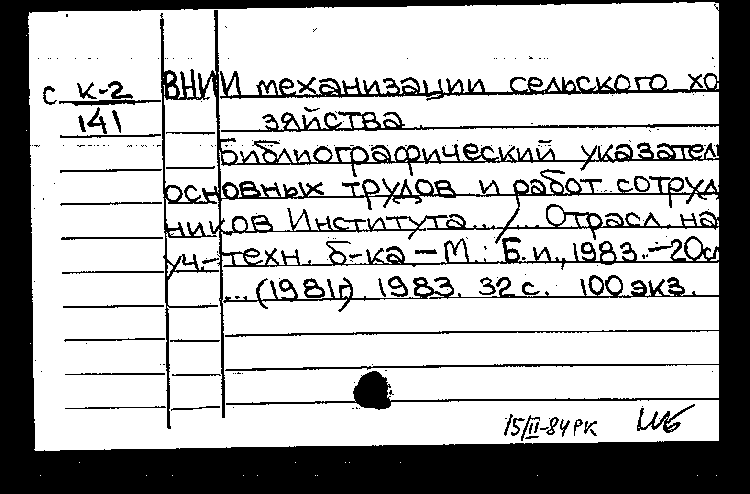 с К-2 ВНИИ механизации сельского хо
141 зяйства
Библиографический указател
основных трудов и работ сотруд
ников Института ... / Отрасл. на
уч.-техн. б-ка – М.: Б.и., 1983. – 20см
... (1981г.) 1983. 32 с. 100 экз.
15/II-84 РК